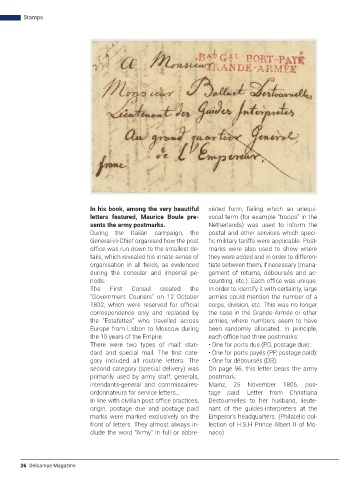 Stamps
Bau GAL PORT-PAYÉ
GRANDE-ARMÉE
à Monsieur
Monsieur Balluet Destournelles
Lieutenant des Guides Interprètes
Au grand quartier Général
de L'Empereur.
franc
In his book, among the very beautiful
letters featured, Maurice Boule pre-
sents the army postmarks.
During the Italian campaign, the
General-in-Chief organised how the post
office was run down to the smallest de-
tails, which revealed his innate sense of
organisation in all fields, as evidenced
during the consular and imperial pe-
riods.
The First Consul created the
"Government Couriers" on 12 October
1802, which were reserved for official
correspondence only and replaced by
the "Estafettes" who travelled across
Europe from Lisbon to Moscow during
the 10 years of the Empire.
There were two types of mail: stan-
dard and special mail. The first cate-
gory included all routine letters. The
second category (special delivery) was
primarily used by army staff, generals,
intendants-general and commissaires-
ordonnateurs for service letters…
In line with civilian post office practices,
origin, postage due and postage paid
marks were marked exclusively on the
front of letters. They almost always in-
clude the word "Army" in full or abbre-
viated form, failing which an unequi-
vocal term (for example "troops" in the
Netherlands) was used to inform the
postal and other services which speci-
fic military tariffs were applicable. Post-
marks were also used to show where
they were added and in order to differen-
tiate between them, if necessary (mana-
gement of returns, déboursés and ac-
counting, etc.). Each office was unique.
In order to identify it with certainty, large
armies could mention the number of a
corps, division, etc. This was no longer
the case in the Grande Armée or other
armies, where numbers seem to have
been randomly allocated. In principle,
each office had three postmarks:
• One for ports dus (PD, postage due);
• One for ports payés (PP, postage paid);
• One for déboursés (DB).
On page 96, this letter bears the army
postmark.
Mainz, 25 November 1806, pos-
tage paid. Letter from Christiana
Destournelles to her husband, lieute-
nant of the guides-interpreters at the
Emperor's headquarters. (Philatelic col-
lection of H.S.H Prince Albert II of Mo-
naco)
26 Delcampe Magazine